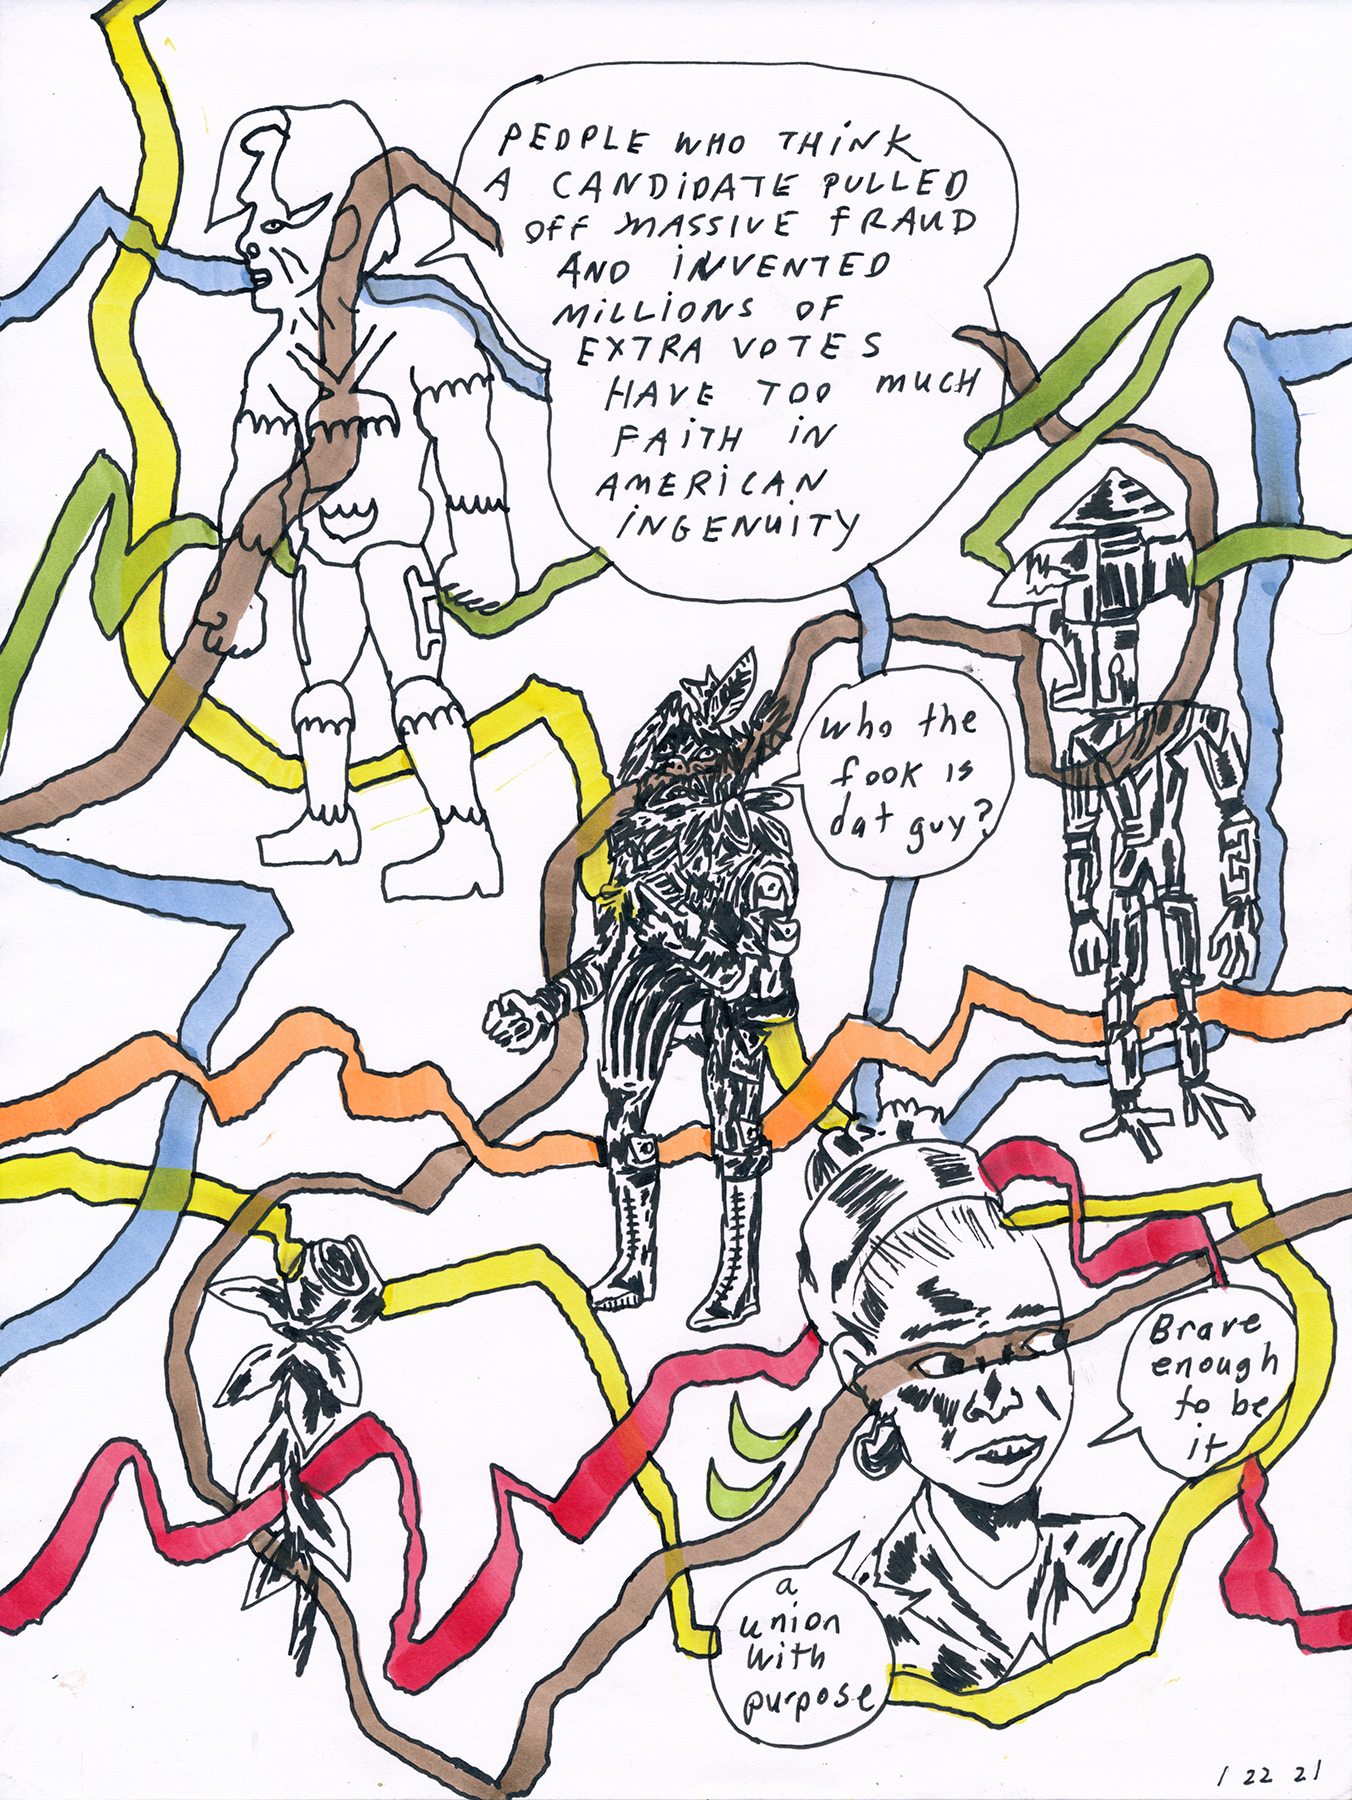 PEOPLE WHO THINK
A CANDIDATE PULLED
OFF MASSIVE FRAUD
AND INVENTED
MILLIONS OF
EXTRA VOTES
HAVE TOO MUCH
FAITH IN
AMERICAN
INGENUITY
who the
fook is
dat guy?
Brave
enough
to be
it
a
union
with
purpose
1 22 21